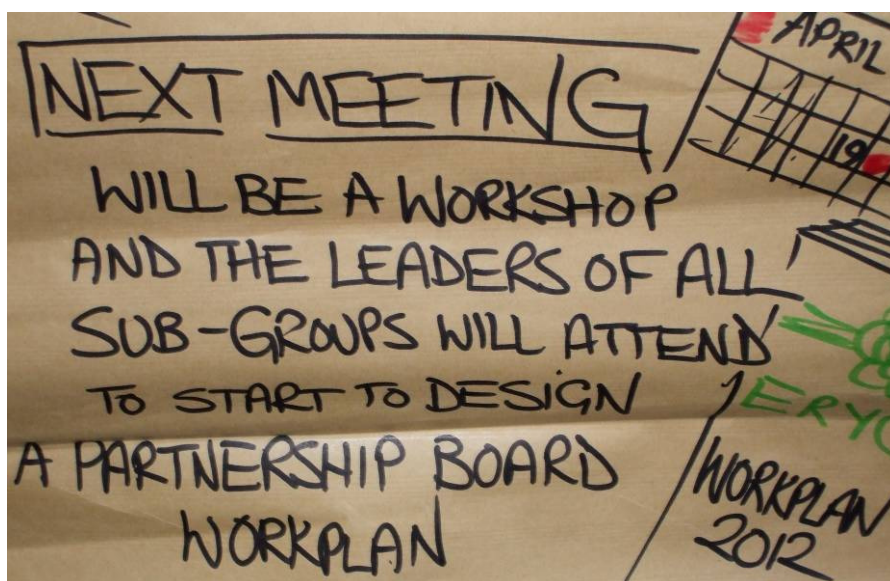 NEXT MEETING
WILL BE A WORKSHOP
AND THE LEADERS OF ALL
SUB-GROUPS WILL ATTEND
TO START TO DESIGN
A PARTNERSHIP BOARD
WORKPLAN
APRIL
19
WORKPLAN
2012